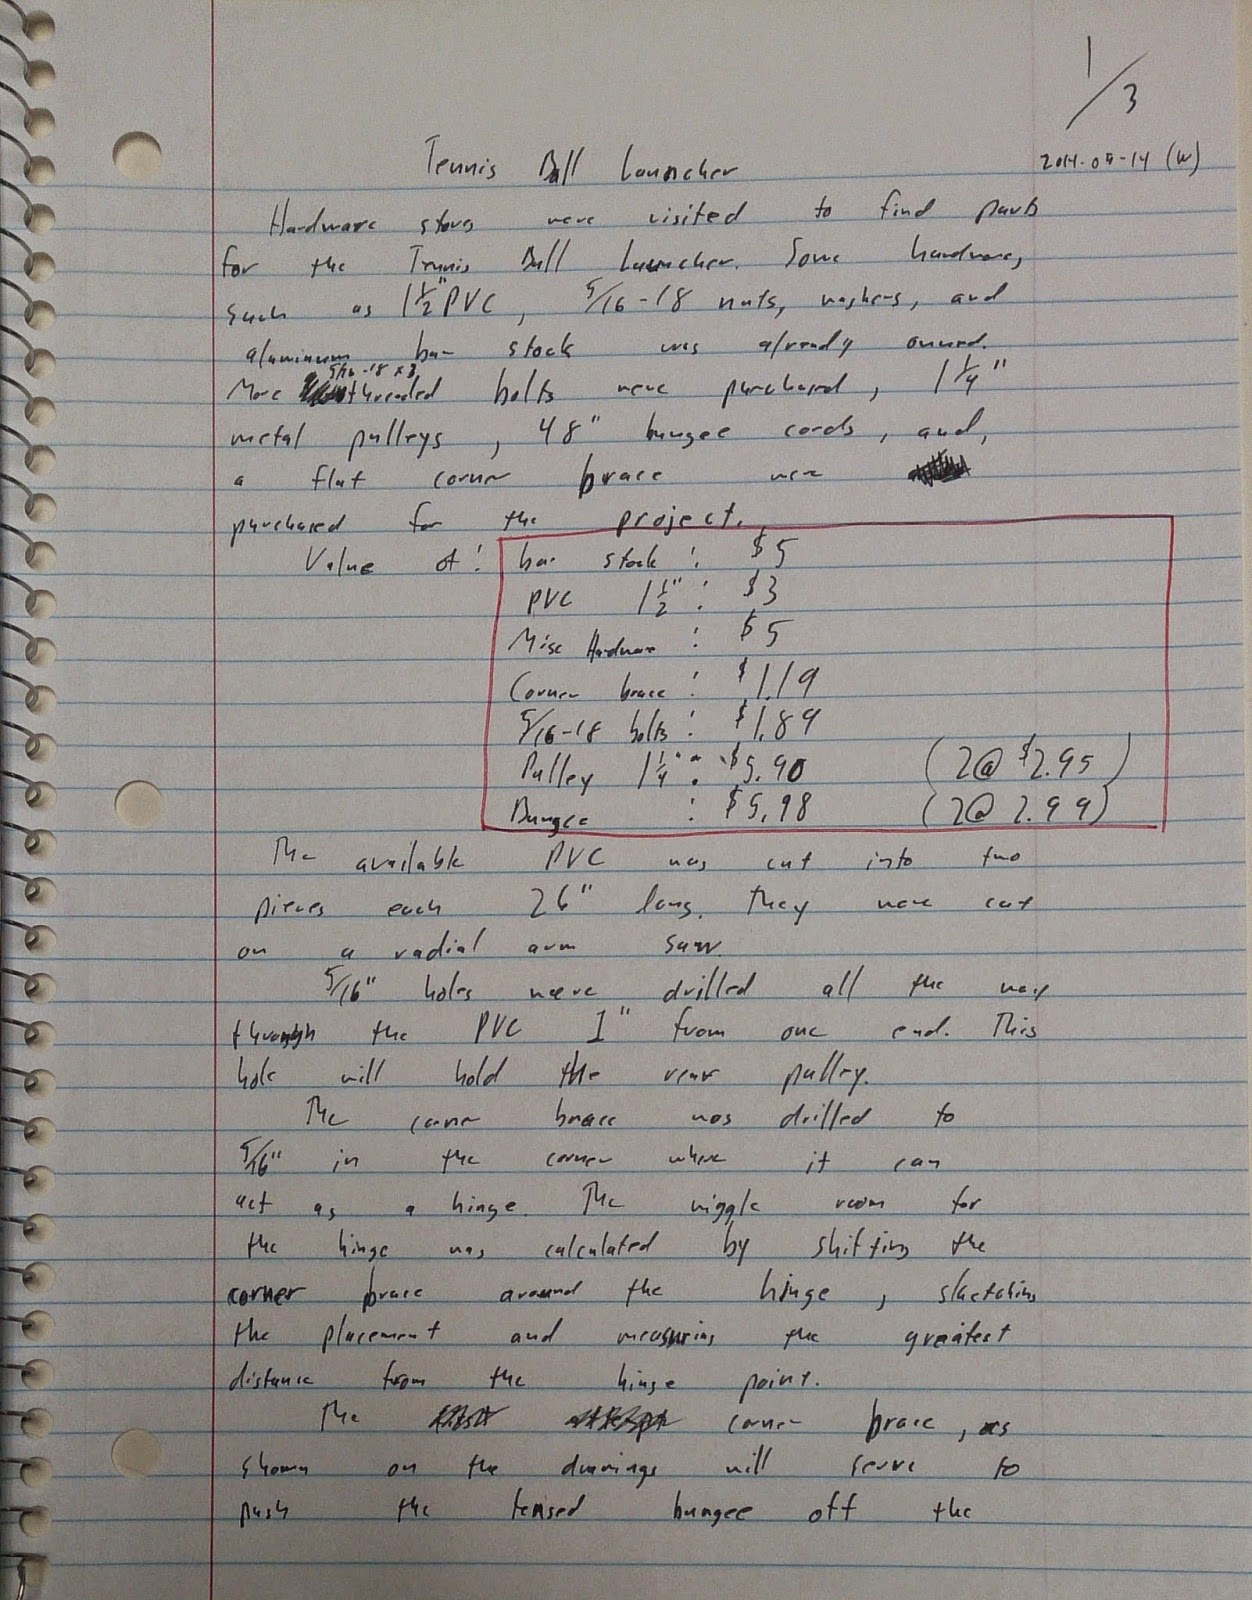 1/3
Tennis Ball Launcher
2014-05-14 (W)
Hardware stores were visited to find parts
for the Tennis Ball Launcher. Some hardware,
such as 1 1/2" PVC, 5/16-18 nuts, washers, and
aluminium bar stock was already owned.
5/16-18 x 3
More threaded bolts were purchased, 1 1/4"
metal pulleys, 48" bungee cords, and,
a flat corner brace were
purchased for the project.
Value of: bar stock: $5
PVC 1 1/2": $3
Misc Hardware: $5
Corner brace: $1.19
5/16-18 bolts: $1.89
Pulley 1 1/4": $5.90 (2@ $2.95)
Bungee: $5.98 (2@ 2.99)
The available PVC was cut into two
pieces each 26" long. They were cut
on a radial arm saw.
5/16" holes were drilled all the way
through the PVC 1" from one end. This
hole will hold the rear pulley.
The corner brace was drilled to
5/16" in the corner where it can
act as a hinge. The wiggle room for
the hinge was calculated by shifting the
corner brace around the hinge, sketching
the placement and measuring the greatest
distance from the hinge point.
The corner brace, as
shown on the drawings will serve to
push the tensed bungee off the